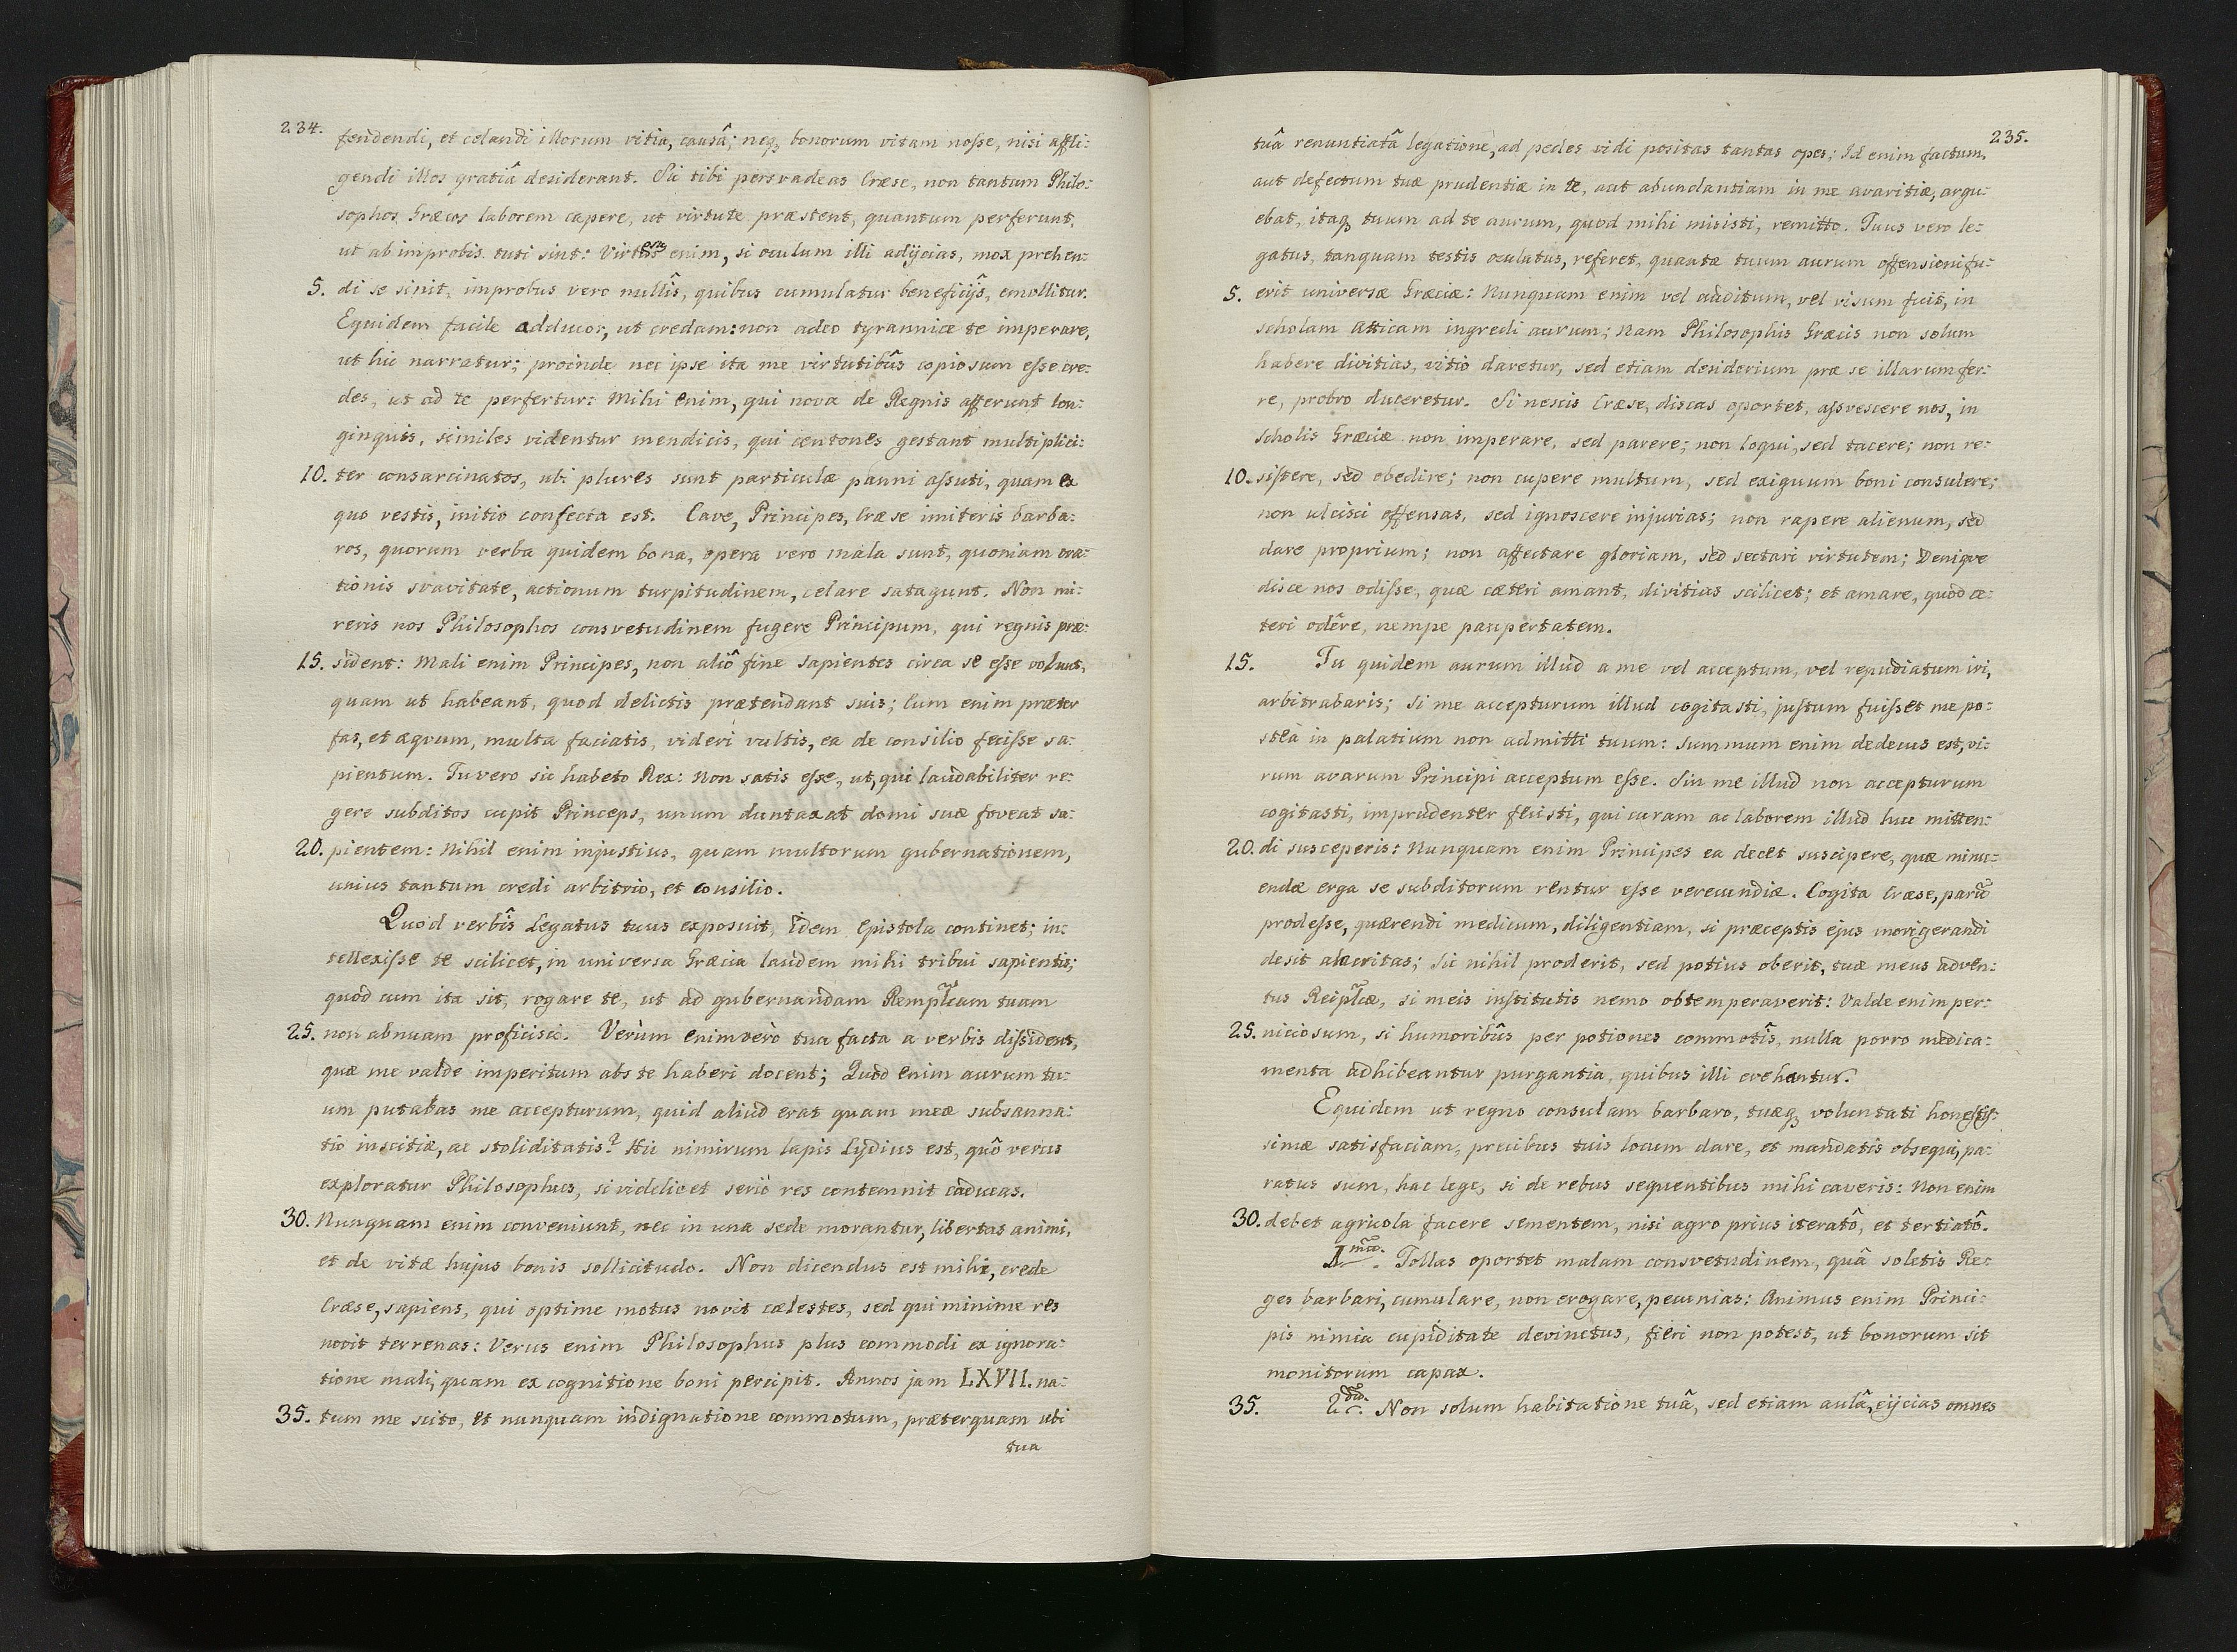 234.
fendendi, et celandi illorum vitia, causâ; neq bonorum vitam nosse, nisi affli:
gendi illos gratiâ desiderant. Sic tibi persvadeas Cræse, non tantum Philo:
sophos Græcos laborem capere, ut virtute præstent, quantum perferunt,
ut ab improbis tuti sint: Virtus enim, si oculum illi adijcias, mox prehen:
5. di se sinit, improbus vero nullîs, quibus cumulatur beneficijs, emollitur.
Equidem facile adducor, ut credam: non adeo tyrannice te imperare,
ut hic narratur; proinde nec ipse ita me virtutibûs copiosum esse cre:
des, ut ad te perfertur: Mihi enim, qui nova de Regnis afferunt lon:
ginquis, similes videntur mendicis, qui centones gestant multiplici:
10. ter consarcinatos, ubi plures sunt particulæ panni assuti, quam ex
quo vestis, initio confecta est. Cave, Principes, Cræse imiteris barba:
ros, quorum verba quidem bona, opera vero mala sunt, quoniam ora:
tionis svavitate, actionum turpitudinem, celare satagunt. Non mi:
reris nos Philosophos consvetudinem fugere Principum, qui regnis præ:
15. sident: Mali enim Principes, non aliô fine sapientes circa se esse volunt,
quam ut habeant, quod delictis prætendant suis; Cum enim præter
fas, et æqvum, multa faciatis, videri vultis, ea de consilio fecisse sa:
pientum. Tu vero sic habeto Rex: Non satis esse, ut, qui laudabiliter re:
gere subditos cupit Princeps, unum duntaxat domi suæ foveat sa:
20. pientem: Nihil enim injustius, quam multorum gubernationem,
unius tantum credi arbitrio, et consilio.
Quod verbîs Legatus tuus exposuit, idem Epistola continet; in:
tellexisse te scilicet, in universa Græcia laudem mihi tribui sapientis;
quod cum ita sit, rogare te, ut ad gubernandam Remplcam tuam
25. non abnuam proficisci. Verùm enimverò tua facta a verbis dissident,
quæ me valde imperitum abs te haberi docent; Quod enim aurum tu:
um putabas me accepturum, quid aliud erat quam meæ subsanna:
tio inscitiæ, ac stoliditatis? Hic nimirum lapis Lydius est, quô verus
exploratur Philosophus, si videlicet seriò res contemnit caducas.
30. Nunquam enim conveniunt, nec in una sede morantur, libertas animi,
et de vitæ hujus bonis sollicitudo. Non dicendus est mihi, crede
Cræse, sapiens, qui optime motus novit cælestes, sed qui minime res
novit terrenas: Verus enim Philosophus plus commodi ex ignora:
tione mali, quam ex cognitione boni percipit. Annos jam LXVII. na:
35. tum me scito, et nunquam indignatione commotum, præterquam ubi
tua
235.
tuâ renuntiatâ legatione, ad pedes vidi positas tantas opes; Id enim factum,
aut defectum tuæ prudentiæ in te, aut abundantiam in me avaritiæ, argu:
ebat, itaq tuum ad te aurum, quod mihi misisti, remitto. Tuus vero le:
gatus, tanquam testis oculatus, referet, quantæ tuum aurum offensioni fu:
5. erit universæ Græciæ: Nunquam enim vel auditum, vel visum fuit, in
scholam Atticam ingredi aurum; Nam Philosophis Græcis non solum
habere divitias, vitio daretur, sed etiam desiderium præ se illarum fer:
re, probro duceretur. Si nescis Cræse, discas oportet, assvescere nos, in
Scholis Græciæ non imperare, sed parere; non loqui, sed tacere; non re:
10. sistere, sed obedire; non cupere multum, sed exiguum boni consulere;
non ulcisci offensas, sed ignoscere injurias; non rapere alienum, sed
dare proprium; non affectare gloriam, sed sectari virtutem; Denique
disce nos odisse, quæ cæteri amant, divitias scilicet; et amare, quod cæ:
teri odêre, nempe paupertatem.
15. Tu quidem aurum illud a me vel acceptum, vel repudiatum iri,
arbitrabaris; Si me accepturum illud cogitasti, justum fuisset me po:
steà in palatium non admitti tuum: Summum enim dedecus est, vi:
rum avarum Principi acceptum esse. Sin me illud non accepturum
cogitasti, imprudenter fecisti, qui curam ac laborem illud huc mitten:
20. di susceperis: Nunquam enim Principes ea decet suscipere, quæ minu:
endæ erga se subditorum rentur esse verecundiæ. Cogita Cræse, parũ
prodesse, quærendi medicum, diligentiam, si præceptis ejus morigerandi
desit alacritas; Sic nihil proderit, sed potius oberit, tuæ meus adven:
tus Reiplcæ, si meis institutis nemo obtemperaverit: Valde enim per:
25. niciosum, si humoribûs per potiones commotîs, nulla porro medica:
menta adhibeantur purgantia, quibus illi evehantur.
Equidem ut regno consulam barbaro, tuæq voluntati honestis:
simæ satisfaciam, precibus tuis locum dare, et mandatis obsequi, pa:
ratus sum, hac lege, si de rebus sequentibus mihi caveris: Non enim
30. debet agricola facere sementem, nisi agro prius iteratô, et tertiatô.
Imo. Tollas oportet malam consvetudinem, quâ soletis Re:
ges barbari, cumulare, non erogare, pecunias: Animus enim Princi:
pis nimia cupiditate devinctus, fieri non potest, ut bonorum sit
monitorum capax.
35. 2do. Non solum habitatione tuâ, sed etiam aulâ, eijcias omnes